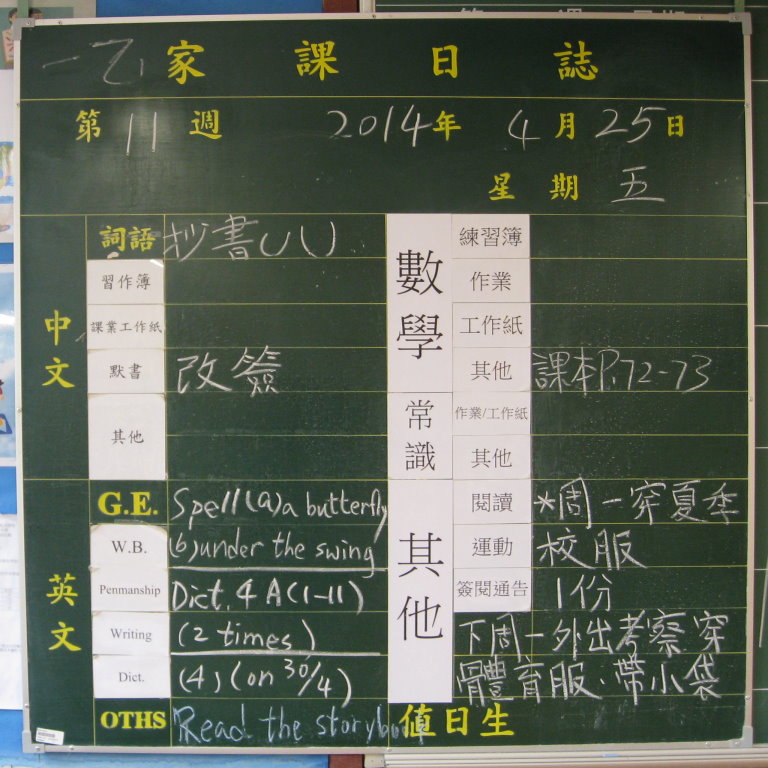 一乙 家課日誌
第 11 週 2014年 4月 25日
星期 五
中文
詞語 抄書
習作簿
課業工作紙
默書 改簽
其他
數學
練習簿
作業
工作紙
其他 課本P.72-73
常識
作業/工作紙
其他
英文
G.E. Spell (a) a butterfly
W.B. (b) under the swing
Penmanship Dict. 4 A (1-11)
Writing (2 times)
Dict. (4) (on 30/4)
OTHS Read the storybook
其他
閱讀 *周一穿夏季
運動 校服
簽閱通告 1份
下周一外出考察穿
體育服.帶小袋
值日生